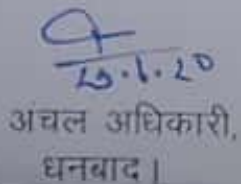 25.1.20
अंचल अधिकारी,
धनबाद।